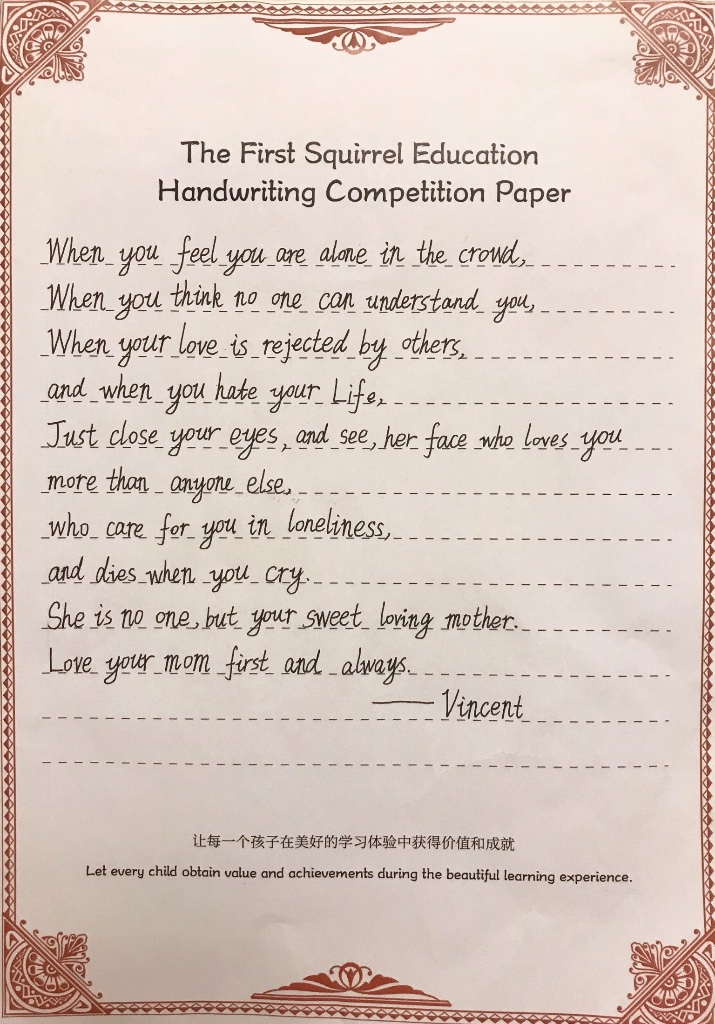 The First Squirrel Education
Handwriting Competition Paper
When you feel you are alone in the crowd,
When you think no one can understand you,
When your love is rejected by others,
and when you hate your Life,
Just close your eyes, and see, her face who loves you
more than anyone else,
who care for you in loneliness,
and dies when you cry.
She is no one, but your sweet loving mother.
Love your mom first and always.
—— Vincent
让每一个孩子在美好的学习体验中获得价值和成就
Let every child obtain value and achievements during the beautiful learning experience.